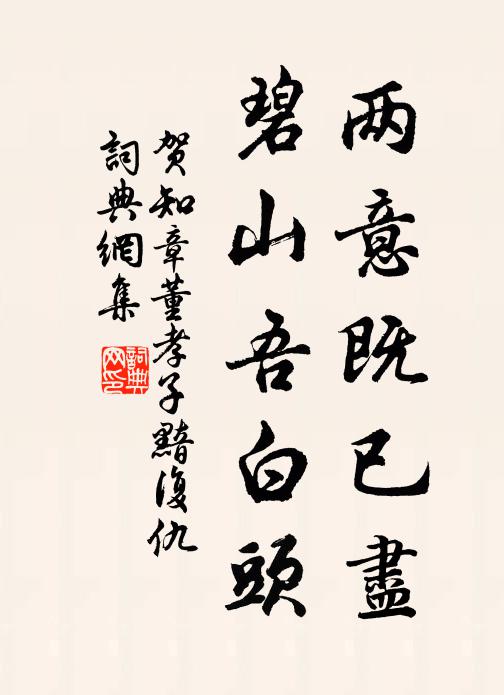 两意既已盡
碧山吾白頭
贺知章董孝子黯復仇
詞典網集
詞典
网印